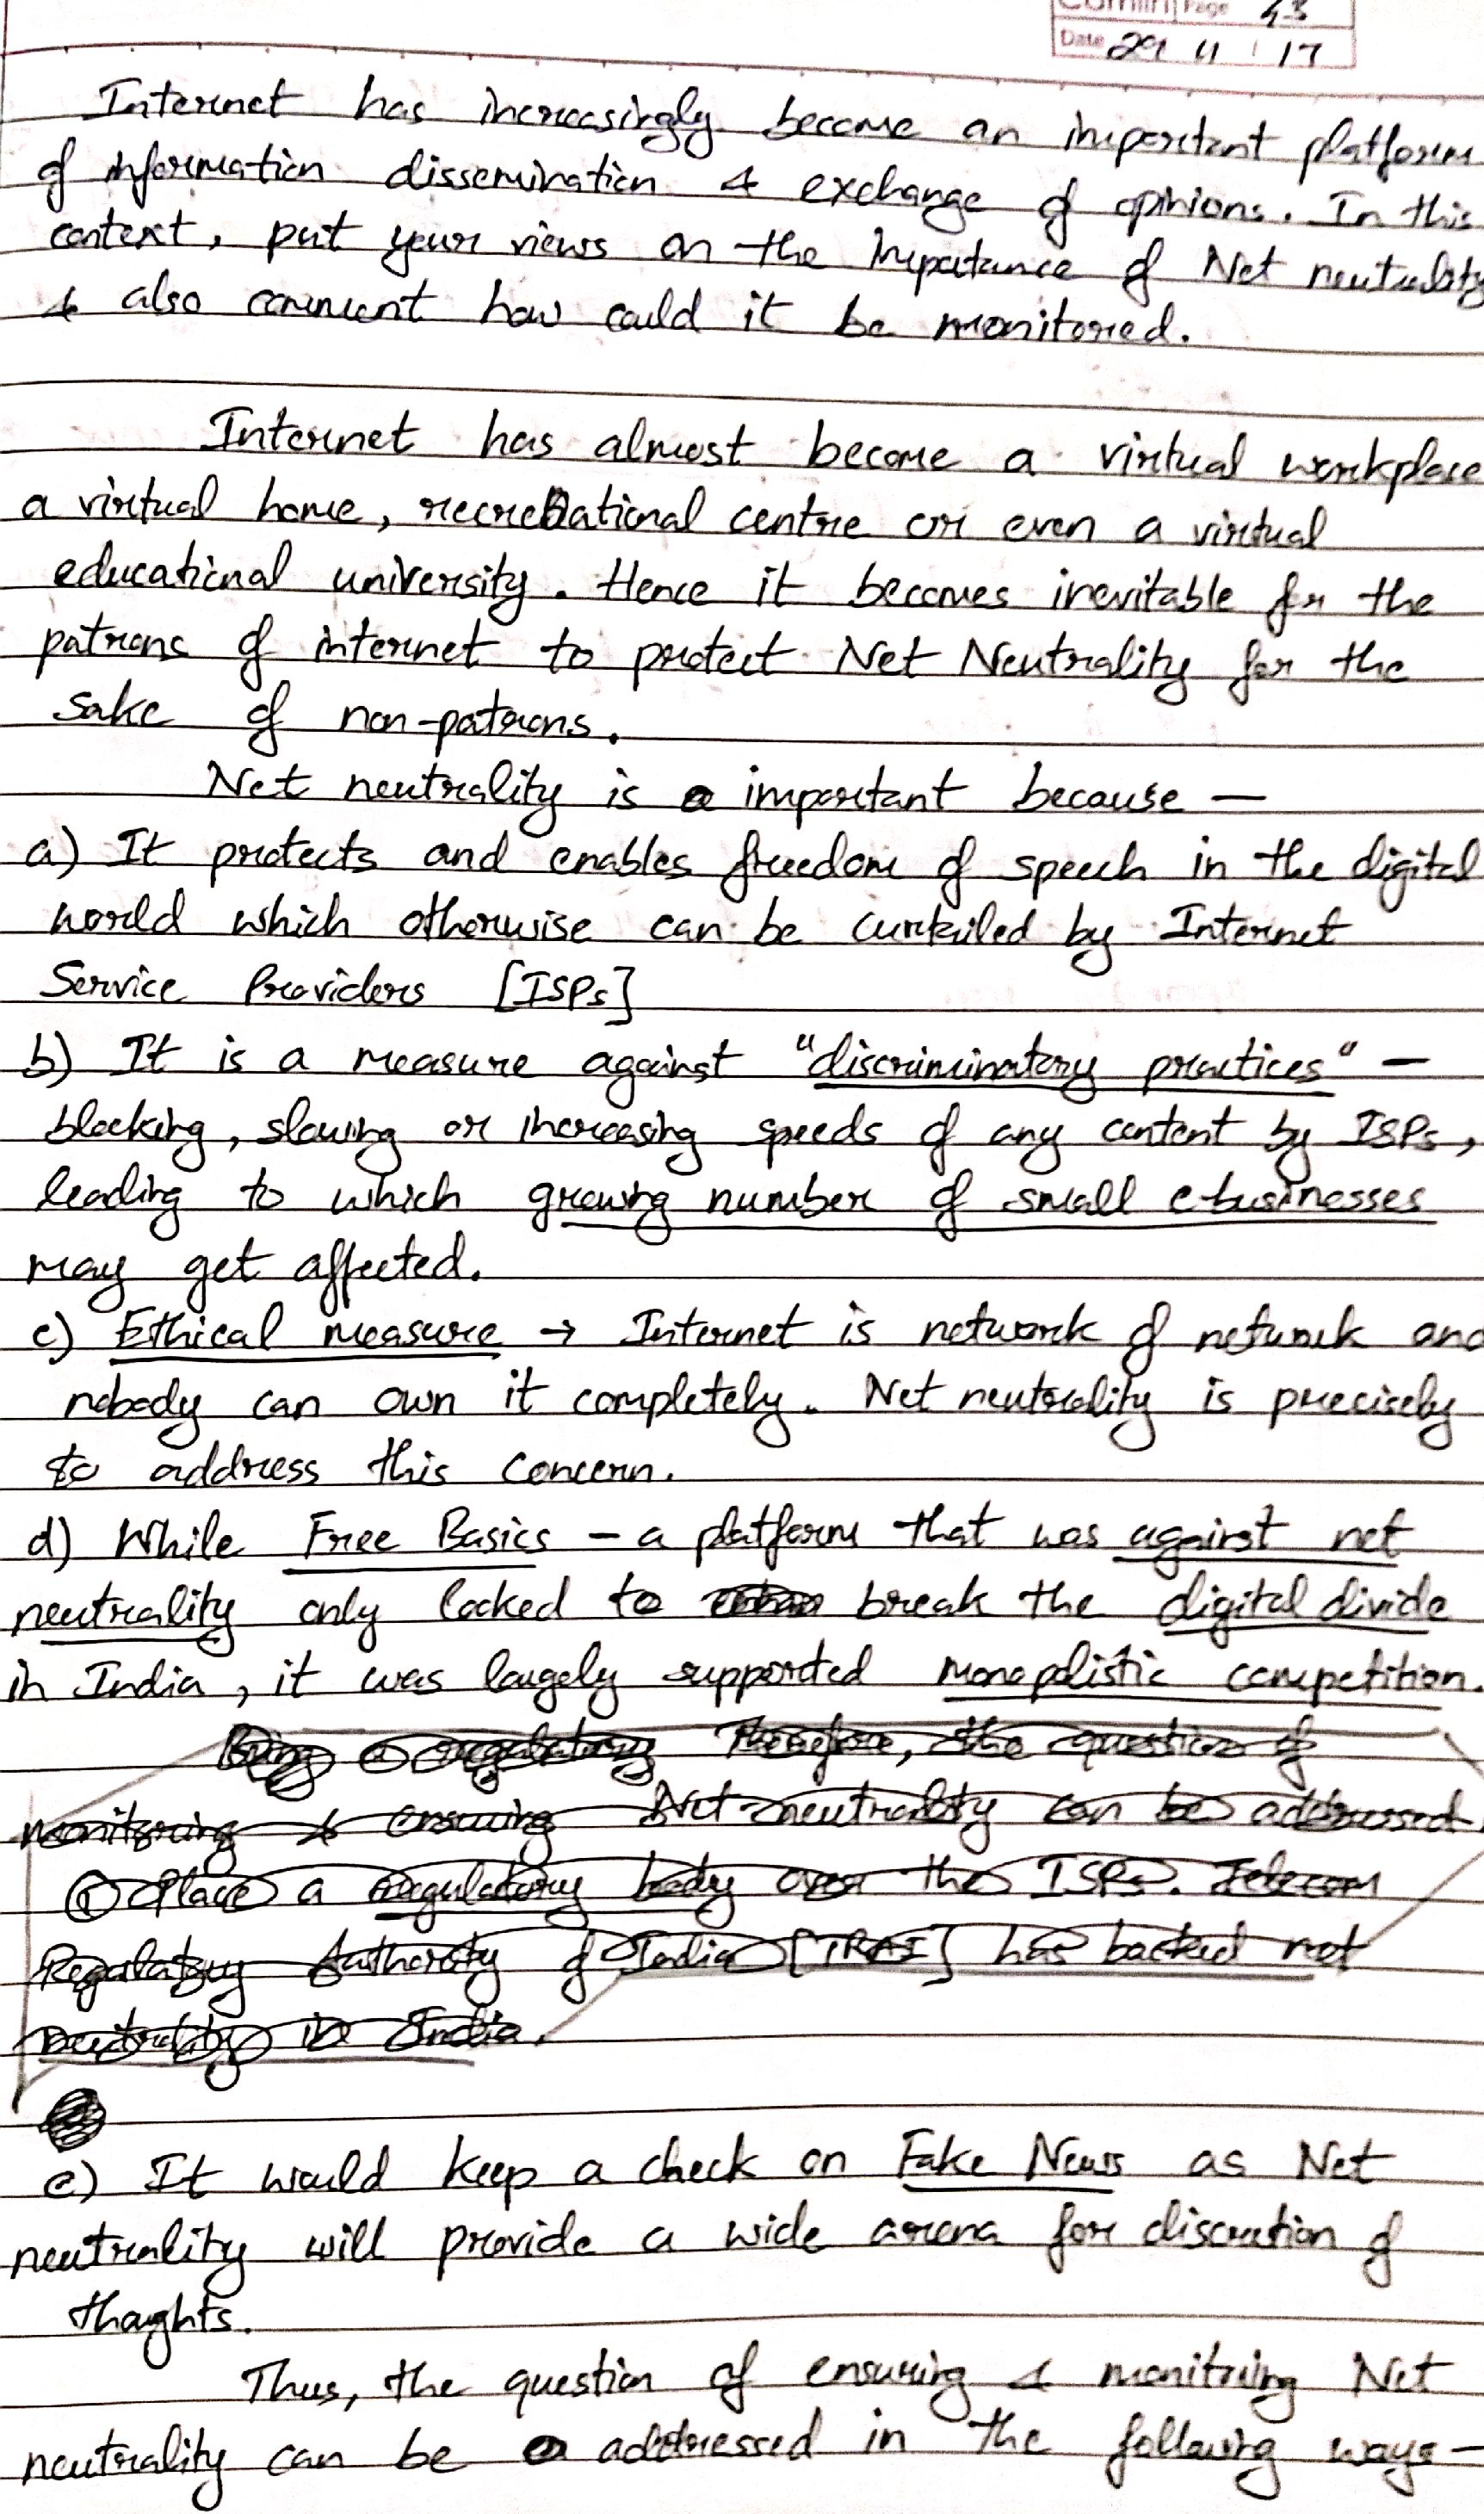 Page 43
Date 29 11 17
Internet has increasingly become an important platform
of information dissemination & exchange of opinions. In this
context, put your views on the impotance of Net neutrality
& also comment how could it be monitored.
Internet has almost become a virtual workplace
a virtual home, recreational centre or even a virtual
educational university. Hence it becomes inevitable for the
patrons of internet to protect Net Neutrality for the
sake of non-patrons.
Net neutrality is important because —
a) It protects and enables freedom of speech in the digital
world which otherwise can be curtailed by Internet
Service Providers [ISPs]
b) It is a measure against "discriminatory practices" —
blocking, slowing or increasing speeds of any content by ISPs,
leading to which growing number of small e-businesses
may get affected.
c) Ethical measure → Internet is network of network and
nobody can own it completely. Net neutrality is precisely
to address this concern.
d) While Free Basics – a platform that was against net
neutrality only looked to break the digital divide
in India, it was largely supported monopolistic competition.
Being a regulatory Therefore, the question of
monitoring & ensuring Net neutrality can be addressed.
① Place a regulatory body over the ISPs. Telecom
Regulatory Authority of India [TRAI] has backed net
neutrality in India.
e) It would keep a check on Fake News as Net
neutrality will provide a wide arena for discretion of
thoughts.
Thus, the question of ensuring & monitring Net
neutrality can be addressed in the following ways –